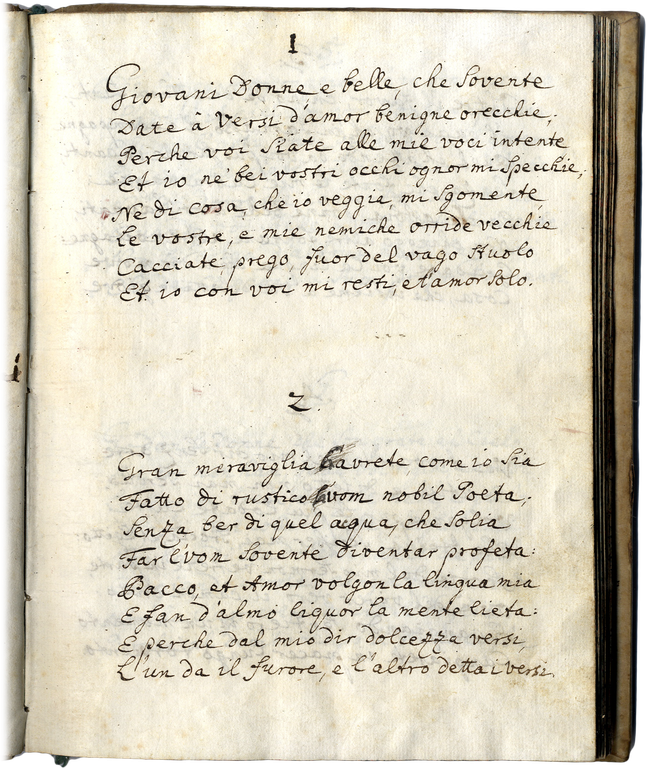 1
Giovani Donne e belle, che sovente
Date à versi d'amor benigne orecchie,
Perche voi siate alle mie voci intente
Et io ne' bei vostri occhi ognor mi specchie,
Ne di cosa, che io veggia, mi sgomente,
Le vostre, e mie nemiche orride vecchie
Cacciate, prego, fuor del vago stuolo
Et io con voi mi resti, et amor solo.
2.
Gran meraviglia havrete come io sia
Fatto di rustico huom nobil Poeta,
Senza ber di quel acqua, che solia
Far l'uom sovente diventar profeta:
Bacco, et Amor volgon la lingua mia
E fan d'almo liquor la mente lieta:
E perche dal mio dir dolcezza versi,
L'un da il furore, e l'altro detta i versi.